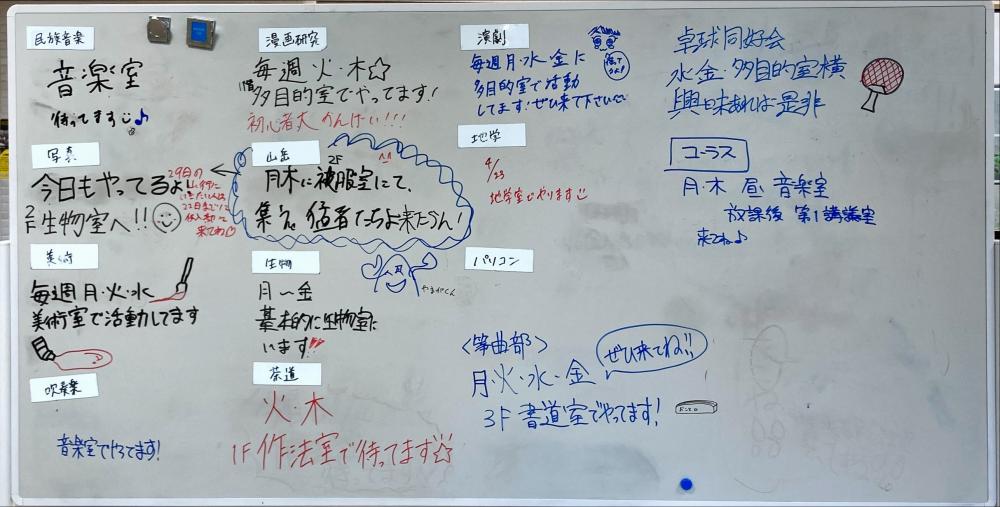 民族音楽
音楽室
待ってます♪
漫画研究
毎週火・木☆
多目的室でやってます!
初心者大かんげい!!!
演劇
毎週月・水・金に
多目的室で活動
してます!ぜひ来て下さい
待ってるよ!
卓球同好会
水金・多目的室横
興味あれば是非
写真
今日もやってるよ!
2F生物室へ!!
29日の
山行に
いきたい人は
22日までに
来てね
山岳
2F
月木に被服室にて、
集え。猛者たちよ来たらん!
地学
4/23
地学室でやります
コーラス
月・木 昼 音楽室
放課後 第1講議室
来てね♪
美術
毎週月・火・水
美術室で活動してます
生物
月〜金
基本的に生物室に
います!!
やまがくん
パソコン
〈箏曲部〉
ぜひ来てね!!
月・火・水・金
3F 書道室でやってます!
吹奏楽
音楽室でやってます!
茶道
火・木
1F 作法室で待ってます☆